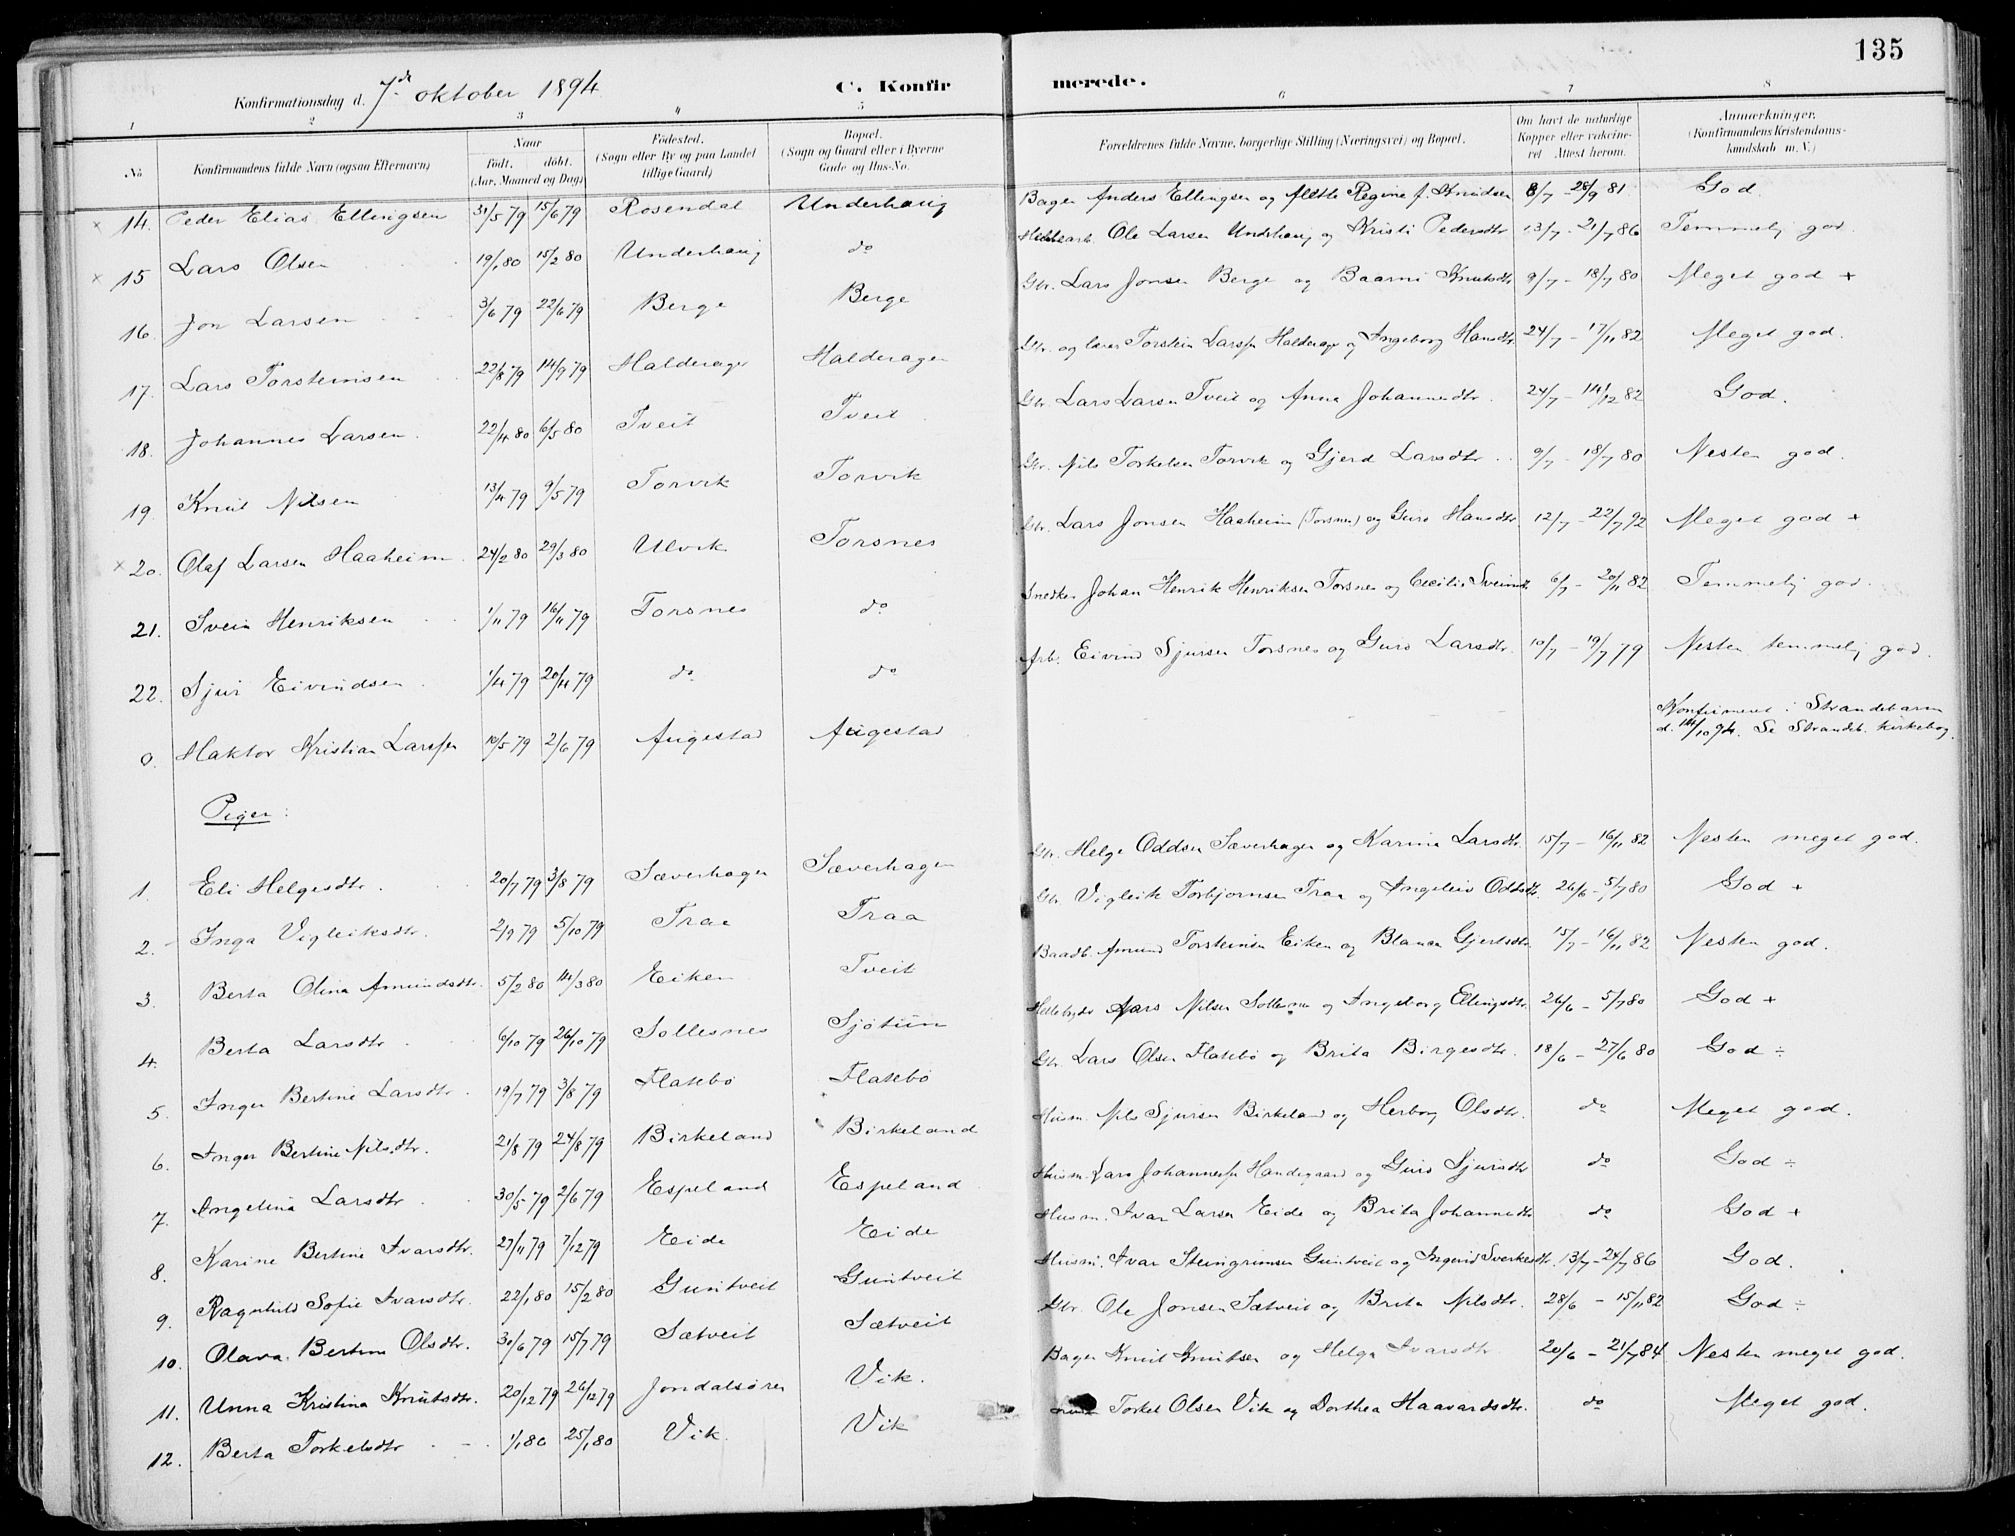 135
Konfirmationsdag d. 7de oktober 1894. C. Konfirmerede.
1 2 3 4 5 6 7 8
No Konfirmandens fulde Navn (ogsaa Efternavn) Naar født. døbt. (Aar, Maaned og Dag) Fødested. (Sogn eller By og paa Landet tillige Gaard) Bopæl. (Sogn og Gaard eller i Byerne Gade og Hus-No. Forældrenes fulde Navne, borgerlige Stilling (Næringsvei) og Bopæl. Om havt de naturlige Kopper eller vakcineret Attest herom. Anmærkninger. (Konfirmandens Kristendomskundskab m. V.)
× 14. Peder Elias Ellingsen 31/5 79 15/6 79 Rosendal Underhaug Bager Anders Ellingsen og Alette Regine f. Knudsen 8/7 - 28/9 81 God.
× 15 Lars Olsen 19/1 80 15/2 80 Underhaug do Ole Larsen Underhaug og Kristi Pedersdtr 13/7 - 21/7 86 Temmelig god.
16. Jon Larsen 3/6 79 22/6 79 Berge Berge Gbr. Lars Jonsen Berge og Baarni Knutsdtr 9/7 - 18/7 80 Meget god +
17. Lars Torsteinsen 22/8 79 14/9 79 Halderager Halderager Gbr. og lærer Torstein Larssen Halderager og Ingeborg Hansdtr. 24/7 - 17/11 82 Meget god.
18. Johannes Larsen. 22/4 80 6/5 80 Tveit Tveit Gbr. Lars Larsen Tveit og Anna Johannesdtr. 24/7 - 14/12 82 God.
19. Knut Nilsen 13/4 79 9/5 79 Torvik Torvik Gbr. Nils Torkelsen Torvik og Gjerd Larsdtr. 9/7 - 18/7 80 Nesten god.
× 20. Olaf Larsen Haaheim. 24/2 80 29/3 80 Ulvik Torsnes Gbr. Lars Jonsen Haaheim (Torsnes) og Guro Hansdtr 12/7 - 22/7 92 Meget god +
21. Svein Henriksen 1/11 79 16/11 79 Torsnes do Snedker Johan Henrik Henriksen Torsnes og Cecilie Sveinsdtr. 6/7 - 20/11 82 Temmelig god.
22. Sjur Eivindsen 1/4 79 20/4 79 do do Arb. Eivind Sjursen Torsnes og Guro Larsdtr. 10/7 - 19/7 79 Nesten temmelig god.
0. Haktor Kristian Larssen 10/5 79 2/6 79 Augestad Augestad Konfirmeret i Strandebarm
d. 14/10 94. Se Strandeb. kirkebog.
Piger:
1. Eli Helgesdtr. 20/7 79 3/8 79 Sæverhagen Sæverhagen Gbr. Helge Oddsen Sæverhagen og Karina Larsdtr. 15/7 - 16/11 82 Nesten meget god.
2. Inga Vigleiksdtr. 2/9 79 5/10 79 Traa Traa Gbr. Vigleik Torbjørnsen Traa og Angeleiv Oddsdtr. 26/6 - 5/7 80 God +
3. Berta Olina Amundsdtr. 5/2 80 14/3 80 Eiken Tveit Baadb. Amund Torsteinsen Eiken og Blanca Gjertsdtr. 15/7 - 16/11 82 Nesten god.
4. Berta Larsdtr. 6/10 79 26/10 79 Sollesnes Sjötun Lars Nilsen Sollesnes og Ingeborg Ellingsdtr. 26/6 - 5/7 80 God +
5. Inger Bertine Larsdtr. 19/7 79 3/8 79 Flatebø Flatebø Gbr. Lars Olsen Flatebø og Brita Birgesdtr. 18/6 - 27/6 80 God ÷
6. Inger Bertine Nilsdtr. 21/8 79 24/8 79 Birkeland Birkeland Husm. Nils Sjursen Birkeland og Herborg Olsdtr. do Meget god.
7. Angelina Larsdtr. 30/5 79 2/6 79 Espeland Espeland Husm. Lars Johannessen Handegaard og Guro Sjursdtr do God ÷
8. Karine Bertine Ivarsdtr. 27/11 79 7/12 79 Eide Eide Husm. Ivar Larsen Eide og Brita Johannesdtr do God +
9. Ragnhild Sofie Ivarsdtr. 22/1 80 15/2 80 Guntveit Guntveit Husm. Ivar Steingrimsen Guntveit og Ingerid Sverkesdtr. 13/7 - 24/7 86 God.
10. Olava Bertine Olsdtr. 30/6 79 15/7 79 Sætveit Sætveit Gbr. Ole Jonsen Sætveit og Brita Nilsdtr. 28/6 - 15/11 82 God ÷
11. Unna Kristina Knutsdtr. 20/12 79 26/12 79 Jondalsøren Vik. Bager Knut Knutsen og Helga Ivarsdtr 20/6 - 21/7 84 Nesten meget god.
12. Berta Torkelsdtr. 1/1 80 25/1 80 Vik. Vik Torkel Olsen Vik og Dorthea Haavardsdtr. do Meget god.